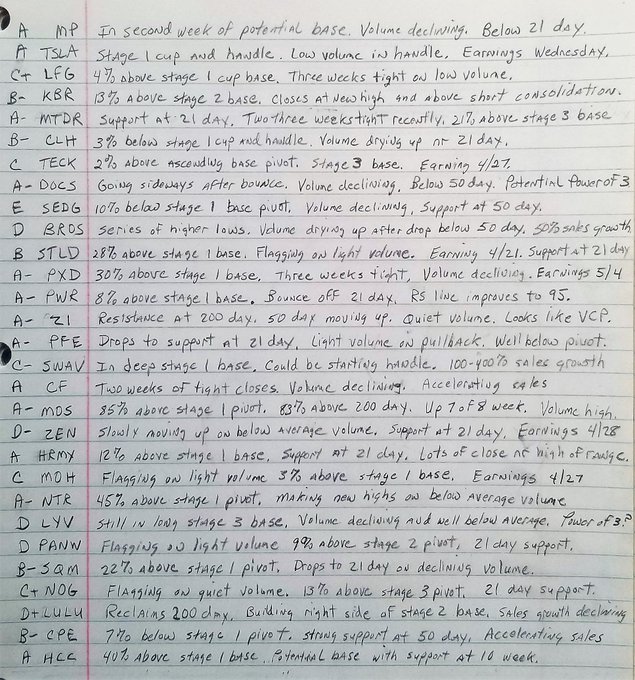 A MP In second week of potential base. Volume declining. Below 21 day.
A TSLA Stage 1 cup and handle. Low volume in handle. Earnings Wednesday.
C+ LFG 4% above stage 1 cup base. Three weeks tight on low volume.
B- KBR 13% above stage 2 base. Closes at new high and above short consolidation.
A- MTDR Support at 21 day. Two three weeks tight recently. 21% above stage 3 base
B- CLH 3% below stage 1 cup and handle. Volume drying up nr 21 day.
C TECK 2% above ascending base pivot. Stage 3 base. Earning 4/27.
A- DOCS Going sideways after bounce. Volume declining. Below 50 day. Potential Power of 3
E SEDG 10% below stage 1 base pivot. Volume declining. Support at 50 day.
D BROS Series of higher lows. Volume drying up after drop below 50 day. 50% sales growth
B STLD 28% above stage 1 base. Flagging on light volume. Earning 4/21. Support at 21 day
A- PXD 30% above stage 1 base. Three weeks tight. Volume declining. Earnings 5/4
A- PWR 8% above stage 1 base. Bounce off 21 day. RS line improves to 95.
A- ZI Resistance at 200 day. 50 day moving up. Quiet volume. Looks like VCP.
A- PFE Drops to support at 21 day. Light volume on pullback. Well below pivot.
C- SWAV In deep stage 1 base. Could be starting handle. 100-400% sales growth
A CF Two weeks of tight closes. Volume declining. Accelerating sales
A- MOS 35% above stage 1 pivot. 83% above 200 day. Up 7 of 8 week. Volume high.
D- ZEN Slowly moving up on below average volume. Support at 21 day. Earnings 4/28
A HRMY 12% above stage 1 base. Support at 21 day. Lots of close nr high of range.
C MOH Flagging on light volume 3% above stage 1 base. Earnings 4/27
A- NTR 45% above stage 1 pivot, making new highs on below average volume
D LYV Still in long stage 3 base. Volume declining and well below average. Power of 3?
D PANW Flagging on light volume 9% above stage 2 pivot, 21 day support.
B- SQM 22% above stage 1 pivot. Drops to 21 day on declining volume.
C+ NOG Flagging on quiet volume. 13% above stage 3 pivot. 21 day support.
D+ LULU Reclaims 200 day. Building right side of stage 2 base. Sales growth declining
B- CPE 7% below stage 1 pivot. Strong support at 50 day. Accelerating sales
A HCC 40% above stage 1 base. Potential base with support at 10 week.